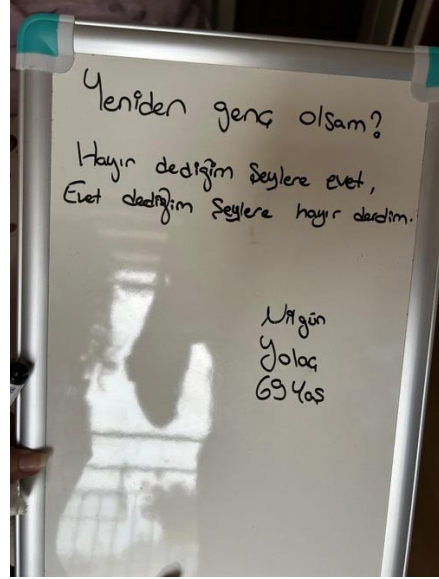 Yeniden genç olsam?
Hayır dediğim Şeylere evet,
Evet dediğim Şeylere hayır derdim.
Nilgün
Yolaç
69 Yaş